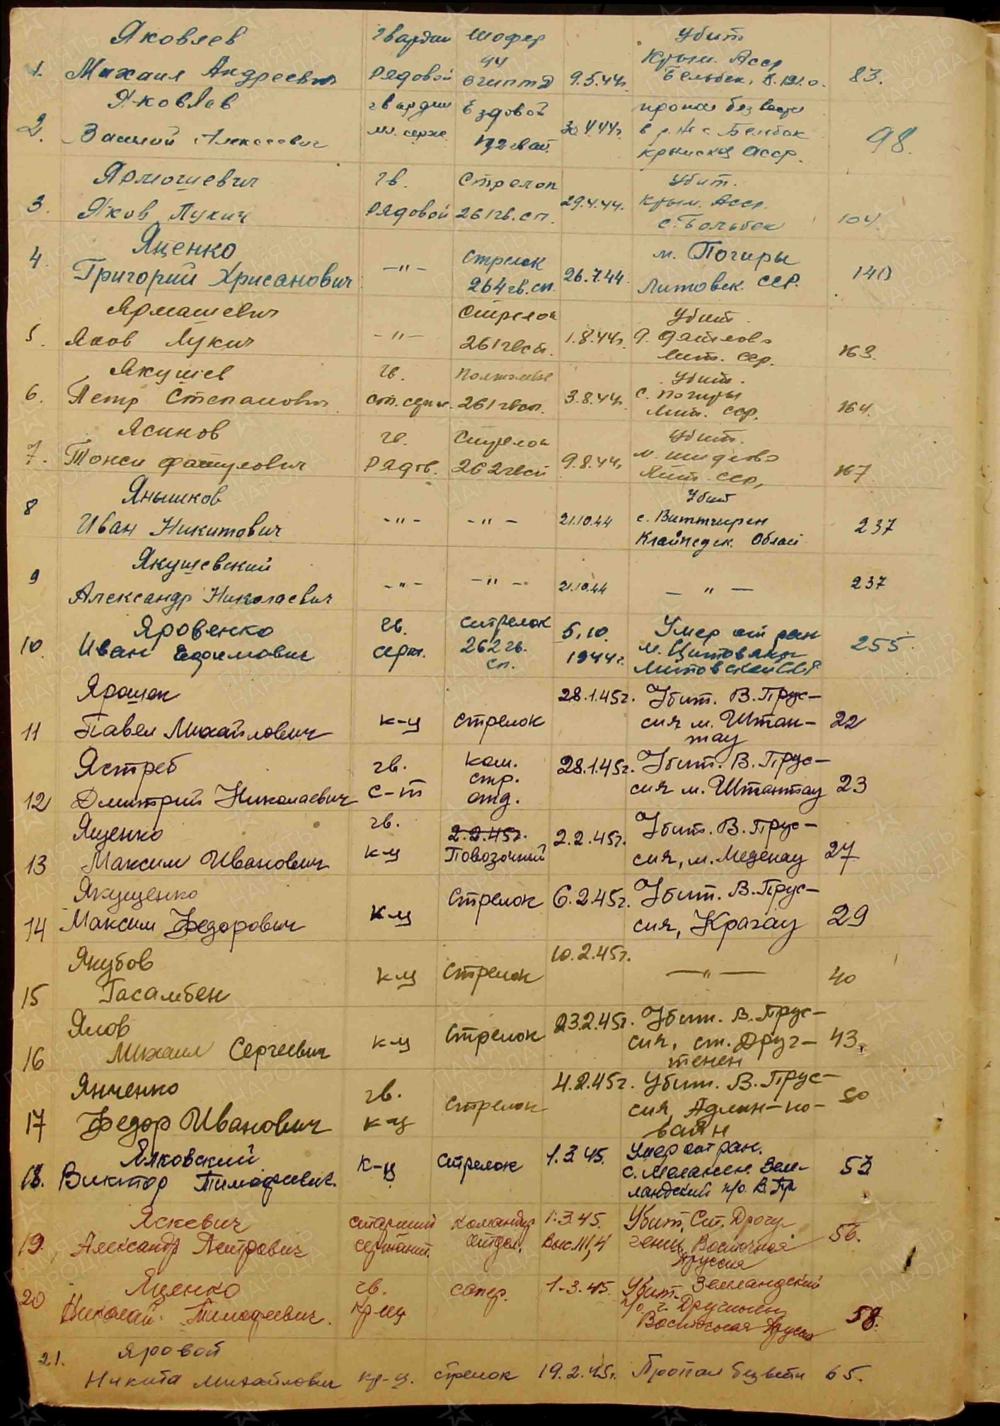 Яковлев гвардии шофер Убит
1. Михаил Андреевич рядовой 9.5.44г. Крым. Асср Бельбек, 83.
Яковлев гвардии Ездовой пропал без вести
2. Василий Алексеевич 30.4.44г. в р-не с. Бельбек 98.
Крымской Асср.
Ярмошевич гв. Стрелок Убит.
3. Яков Лукич рядовой 261 гв. сп. 29.4.44г. Крым. Асср. 104.
с. Бельбек
Яценко Стрелок м. Погиры
4. Григорий Хрисанович —"— 264 гв. сп. 26.7.44 Литовск. ССР. 140
Ярмашевич Стрелок Убит.
5. Яков Лукич —"— 261 гвсп. 1.8.44г. Лит. сср. 163.
Якушев гв. Убит.
6. Петр Степанович ст. серж. 261 гвсп. 3.8.44г. с. Погиры 164.
Лит. сср.
Ясинов гв. Стрелок Убит.
7. рядов. 262 гвсп 9.8.44г. Лит. сср, 167
Янышков Убит
8 Иван Никитович —"— —"— 21.10.44 с. Виттгирен 237
Клайпедск. Област
Якушевский
9 Александр Николаевич —"— —"— 21.10.44 —"— 237
Яровенко гв. стрелок 5.10. Умер от ран
10. Иван Ефимович серж. 262 гв. сп. 1944г. м. Цитовяны 255.
Литовской ССР
Ярошек 28.1.45г. Убит. В. Прус-
11 Павел Михайлович к-ц стрелок сия м. Штан- 22
тау
Ястреб гв. ком. 28.1.45г. Убит. В. Прус-
стр.
12 Дмитрий Николаевич с-т отд. сия м. Штантау 23
Ященко гв. 2.2.45г. 2.2.45г. Убит. В. Прус-
13 Максим Иванович к-ц Повозочный сия, м. Меденау 27
Якущенко Стрелок 6.2.45г. Убит. В. Прус-
14 Максим Федорович к-ц сия, Крагау 29
Якубов 10.2.45г.
к-ц стрелок —"— 40
15 Гасамбек
Ялов Стрелок 23.2.45г. Убит. В. Прус-
16 Михаил Сергеевич к-ц сия, ст. Друг- 43.
тенен
Янченко гв. Стрелок 4.2.45г. Убит. В. Прус-
17 Федор Иванович к-ц сия, 50
Ялковский к-ц стрелок 1.3.45. Умер от ран.
18. Виктор Тимофеевич. Зем- 53
ландский п/о В. Пр
Яскевич старший командир 1.3.45. Убит, Ст. Другу-
19. Александр Петрович сержант. отдел. тенен, Восточная 56.
Пруссия
Яценко гв. сапер. 1.3.45. Убит. Земландский
20 Николай Тимофеевич. кр-ец п/о 58.
Восточная Пруссия
21. Яровой
Никита Михайлович кр-ц. стрелок 19.2.45г. Пропал без вести 65.